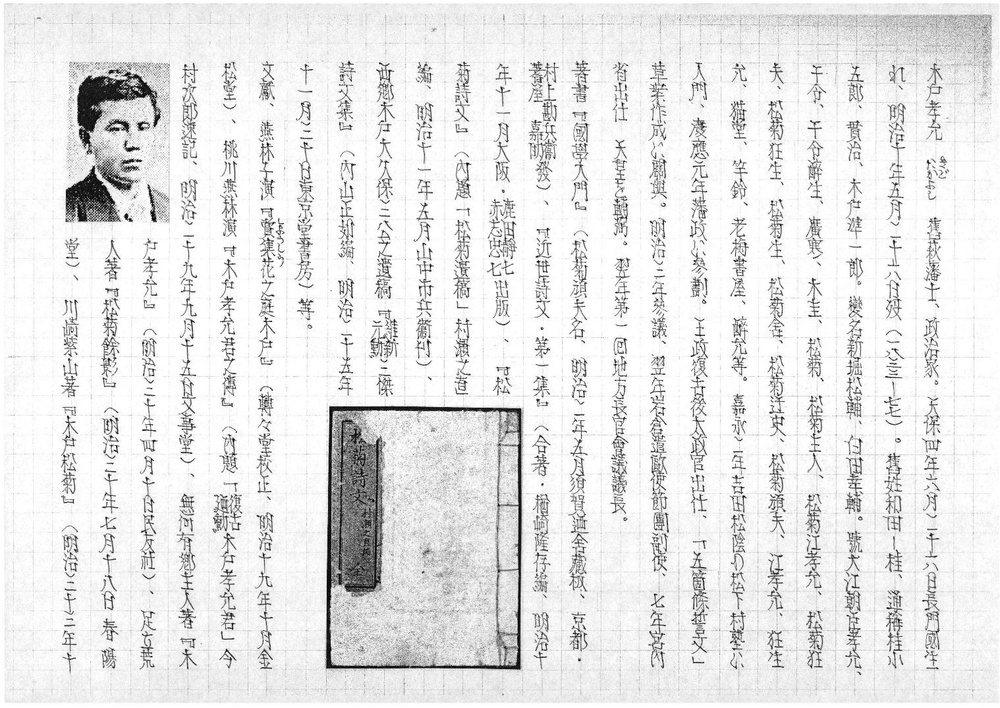 木戸孝允　きどたかよし　舊萩藩士、政治家。天保四年六月二十六日長門國生
れ、明治十年五月二十六日歿（一八三三―七七）。舊姓和田―桂、通稱桂小
五郎、貫治、木戸準一郎。變名新堀松輔、白田孝輔。號大江朝臣孝允、
干令、干令醉生、廣寒、木圭、松菊、松菊主人、松菊江孝允、松菊狂
夫、松菊狂生、松菊生、松菊舍、松菊迂史、松菊頑夫、江孝允、狂生
允、猫堂、竿鈴、老梅書屋、醉允等。嘉永二年吉田松陰の松下村塾に
入門、慶應元年藩政に參劃。王政復古後太政官出仕、「五箇條誓文」
草案作成に關與。明治二年參議、翌年岩倉遣歐使節團副使、七年宮内
省出仕　天皇を輔弼。翌年第一回地方長官會議議長。
著書『國學入門』（松菊頑夫名、明治二年五月須賀適舍藏板、京都・
村上勘兵衞
蓍屋　嘉助發）、『近世詩文・第一集』（合著・楢崎隆存編、明治十
年十一月大阪・鹿田靜七
赤志忠七出版）、『松
菊詩文』（内題「松菊遺稿」村瀬之直
編、明治十一年五月山中市兵衞刊）、
西郷木戸大久保三公之遺稿『維新
元勳三傑
詩文集』（内山正如編、明治二十五年
十一月三十日東京堂書房）等。
文獻、燕林子演『實集花之庭木戸』（博々堂校正、明治十九年十月金
松堂）、桃川燕林演『木戸孝允君之傳』（内題「復古
元勳木戸孝允君」今
村次郎速記、明治三十九年九月十五日文事堂）、無何有郷主人著『木
戸孝允』（明治三十年四月十日民友社）、足立荒
人著『松菊餘影』（明治三十年七月十八日　春　陽
堂）、川崎紫山著『木戸松菊』（明治三十三年十
松菊詩文　村瀬之直編　全